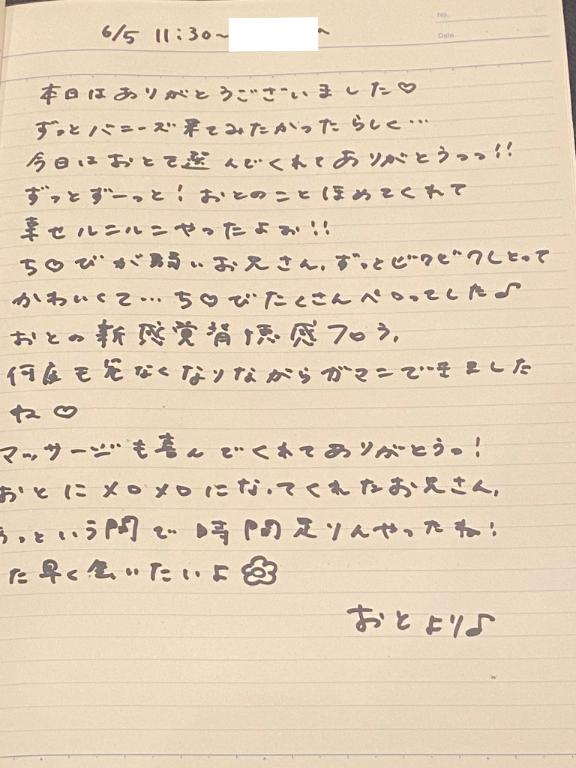 No.
Date
6/5 11:30~ ~
本日はありがとうございました♡
ずっとバニーズ来てみたかったらしく…
今日はおとで選んでくれてありがとうっっ!!
ずっとずーっと!おとのことほめてくれて
幸せルンルンやったよぉ!!
ち♡びが弱いお兄さん、ずっとビクビクしとって
かわいくて…ち♡びたくさんペロってした♪
おとの新感覚 感フロう、
何度も なくなりながらガマンできました
ね♡
マッサージも喜んでくれてありがとうo!
おとにメロメロになってくれたお兄さん、
っという間で時間足りんやったね!
た早く会いたいよ
おとより♪